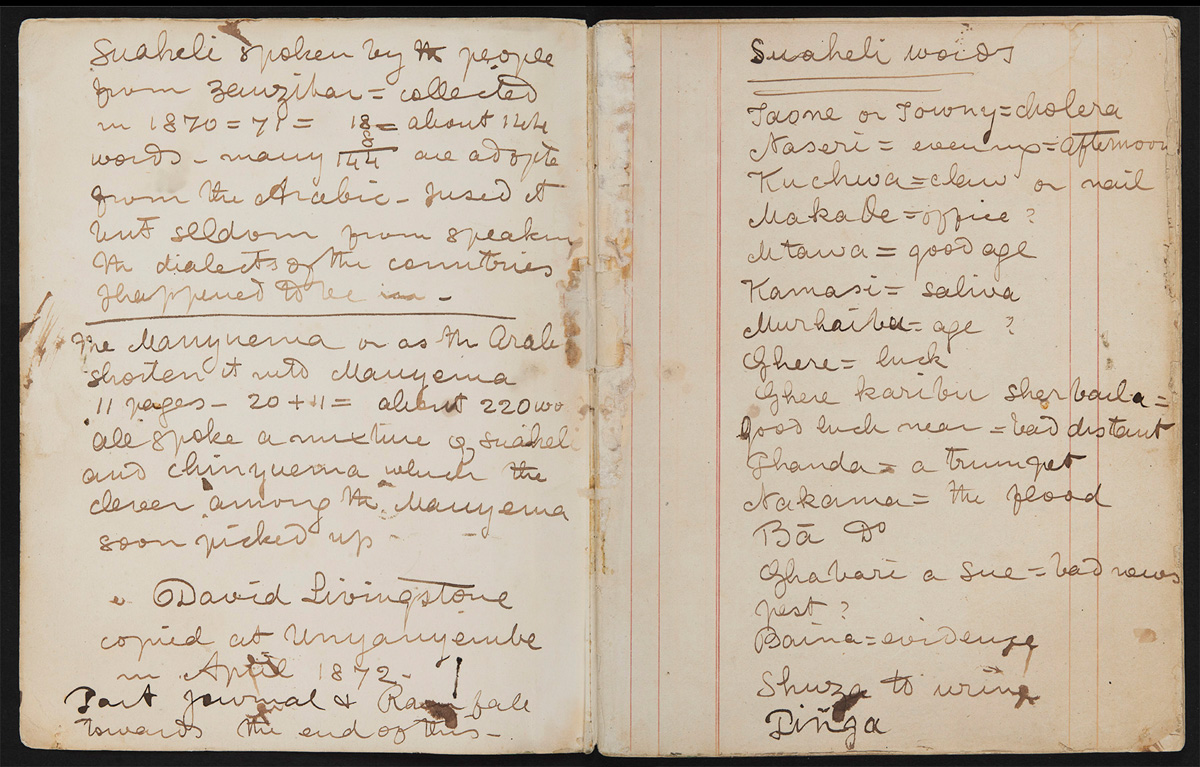 Suaheli spoken by the people
from Zanzibar = collected
in 1870=71 = 18 = about 144
8
words - many 144 are adopte
from the Arabic - I used it
but seldom from speakin
the dialects of the countries
I happened to be in -
The Manyuema or as the Arab
shorten it into Manyema
11 pages - 20 + 11 = about 220 wo
all spoke a mixture of Suaheli
and chinyuema which the
clever among the Manyema
soon picked up -
David Livingstone
copied at Unyanyembe
in April 1872 -
Part journal & Rain fall
towards the end of this -
Suaheli words
Taone or Towny = cholera
Naseri = evening = afternoon
Kuchwa = claw or nail
Makade = office ?
Mtawa = good age
Kamasi = saliva
Murhaiba = age ?
Ghere = luck
Ghere karibu sher baila =
good luck near = bad distant
Ghanda = a trumpet
Nakama = the flood
Bā Do
Ghabari a sue = bad news
pest ?
Baina = evidence
Shuza to urine
Piñga